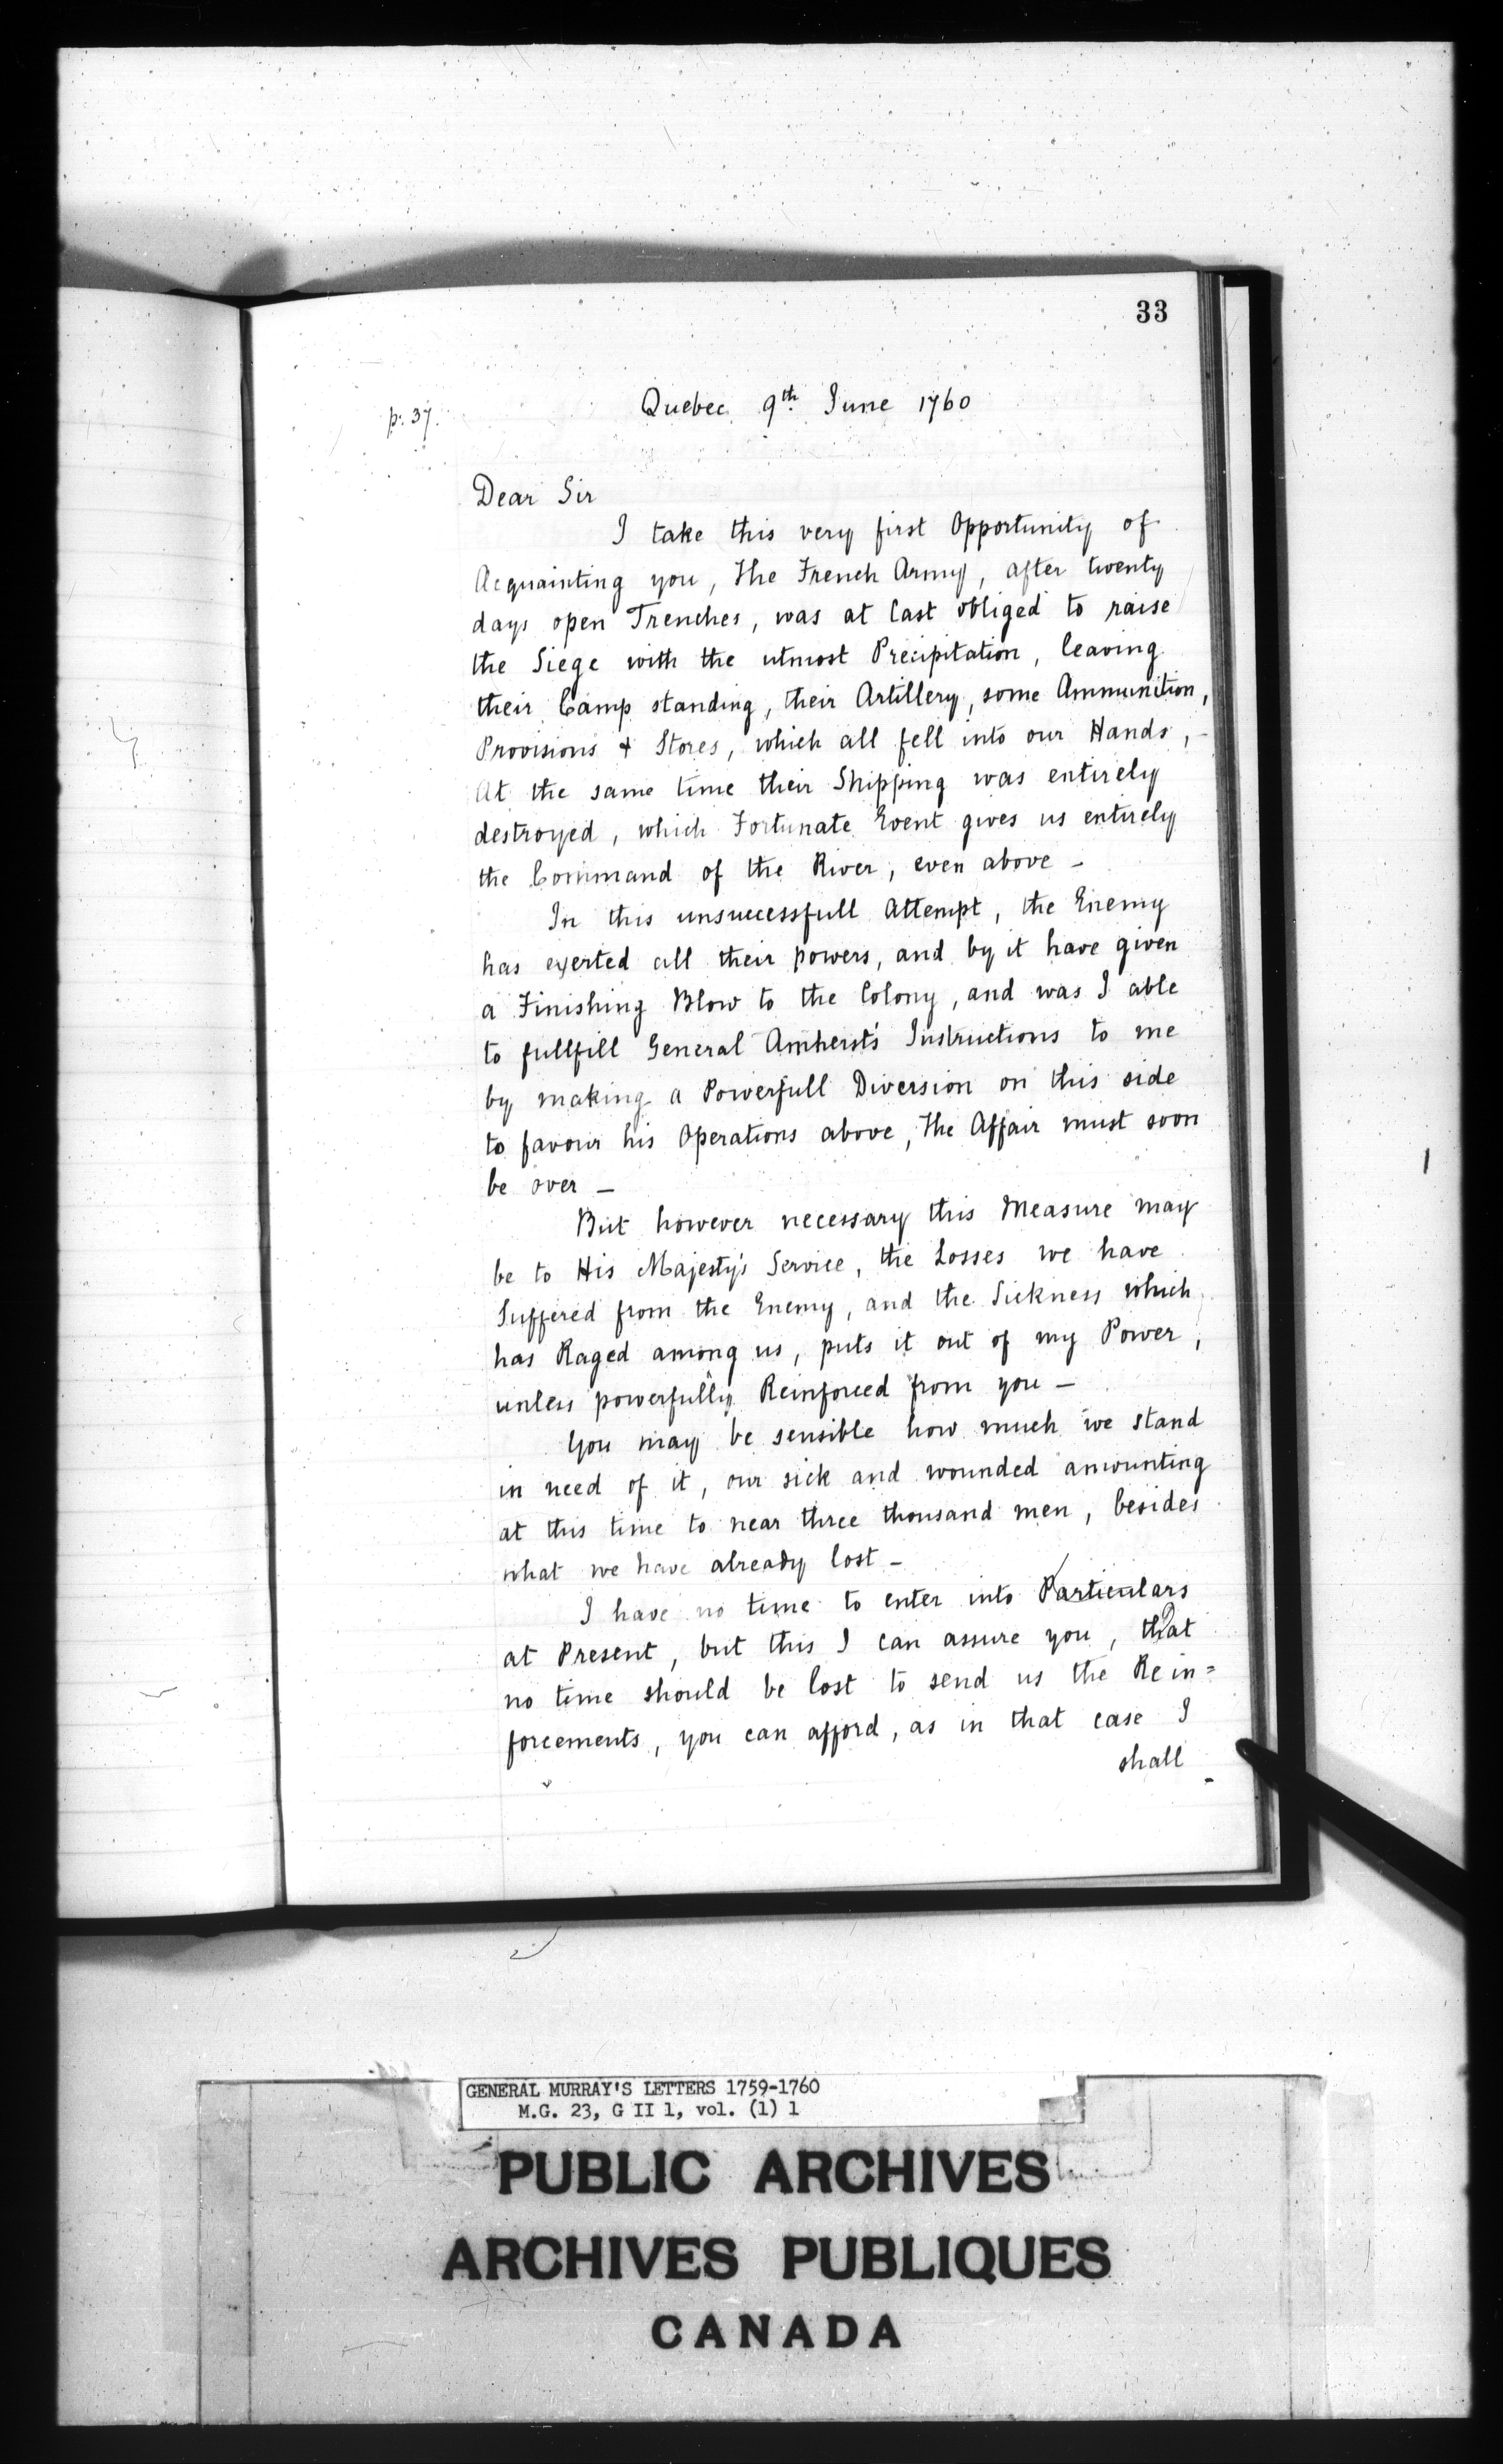 33
p. 37.
Quebec 9th June 1760
Dear Sir
I take this very first Opportunity of
Acquainting you, The French Army, after twenty
days open Trenches, was at last obliged to raise
the Siege with the utmost Precipitation, leaving
their Camp standing, their Artillery, some Ammunition,
Provisions & Stores, which all fell into our Hands, -
At the same time their Shipping was entirely
destroyed, which Fortunate Event gives us entirely
the Command of the River, even above -
In this unsuccessfull Attempt, the Enemy
has exerted all their powers, and by it have given
a Finishing Blow to the Colony, and was I able
to fullfill General Amherst's Instructions to me
by making a Powerfull Diversion on this side
to favour his Operations above, The Affair must soon
be over -
But however necessary this Measure may
be to His Majesty's Service, the Losses we have
Suffered from the Enemy, and the Sickness which
has Raged among us, puts it out of my Power,
unless powerfully Reinforced from you -
You may be sensible how much we stand
in need of it, our sick and wounded amounting
at this time to near three thousand men, besides
what we have already lost -
I have no time to enter into Particulars
at Present, but this I can assure you, that
no time should be lost to send us the Rein=
forcements, you can afford, as in that case I
shall
GENERAL MURRAY'S LETTERS 1759-1760
M.G. 23, G II 1, vol. (1) 1
PUBLIC ARCHIVES
ARCHIVES PUBLIQUES
CANADA